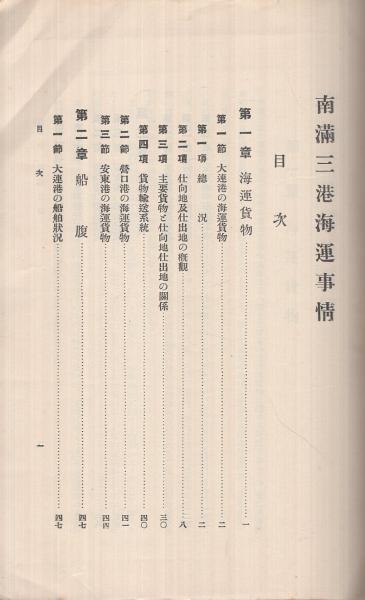 南滿三港海運事情
目次
第一章 海運貨物……一
第一節 大連港の海運貨物……二
第一項 總況……二
第二項 仕向地及仕出地の槪觀……八
第三項 主要貨物と仕向地仕出地の關係……三〇
第四項 貨物輸送系統……四〇
第二節 營口港の海運貨物……四一
第三節 安東港の海運貨物……四四
第二章 船腹……四七
第一節 大連港の船舶狀況……四七
目次 一